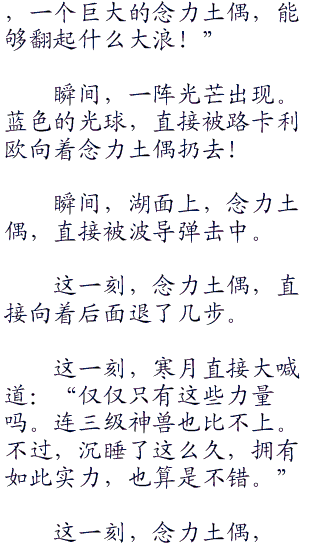 ，一个巨大的念力土偶，能
够翻起什么大浪！”
瞬间，一阵光芒出现。
蓝色的光球，直接被路卡利
欧向着念力土偶扔去！
瞬间，湖面上，念力土
偶，直接被波导弹击中。
这一刻，念力土偶，直
接向着后面退了几步。
这一刻，寒月直接大喊
道：“仅仅只有这些力量
吗。连三级神兽也比不上。
不过，沉睡了这么久，拥有
如此实力，也算是不错。”
这一刻，念力土偶，